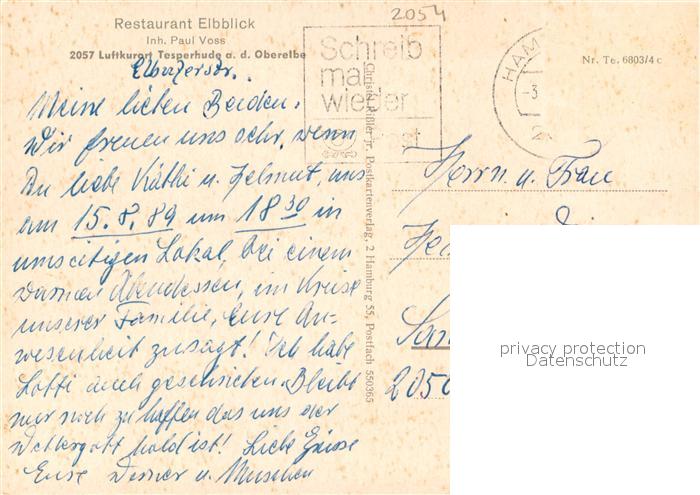 2054
Restaurant Elbblick
Inh. Paul Voss
2057 Luftkurort Tesperhude a. d. Oberelbe
Elbuferstr.
Schreib
mal
wieder
Post
HAM
-3
Nr. Te. 6803/4 c
Meine lieben Beiden.
Wir freuen uns sehr, wenn
Du liebe Käthi u. Helmut, uns
am 15.8.89 um 18 30 in
umseitigen Lokal, bei einem
warmen Abendessen, im Kreise
unserer Familie, Eure An-
wesenheit zusagt! Ich habe
Lotti auch geschrieben. Bleibt
nur noch zu hoffen das uns der
Wettergott hold ist! Liebe Grüsse
Eure Werner u.
jr. Postkartenverlag, 2 Hamburg 55, Postfach 550365
Herrn u. Frau
2050
privacy protection
Datenschutz